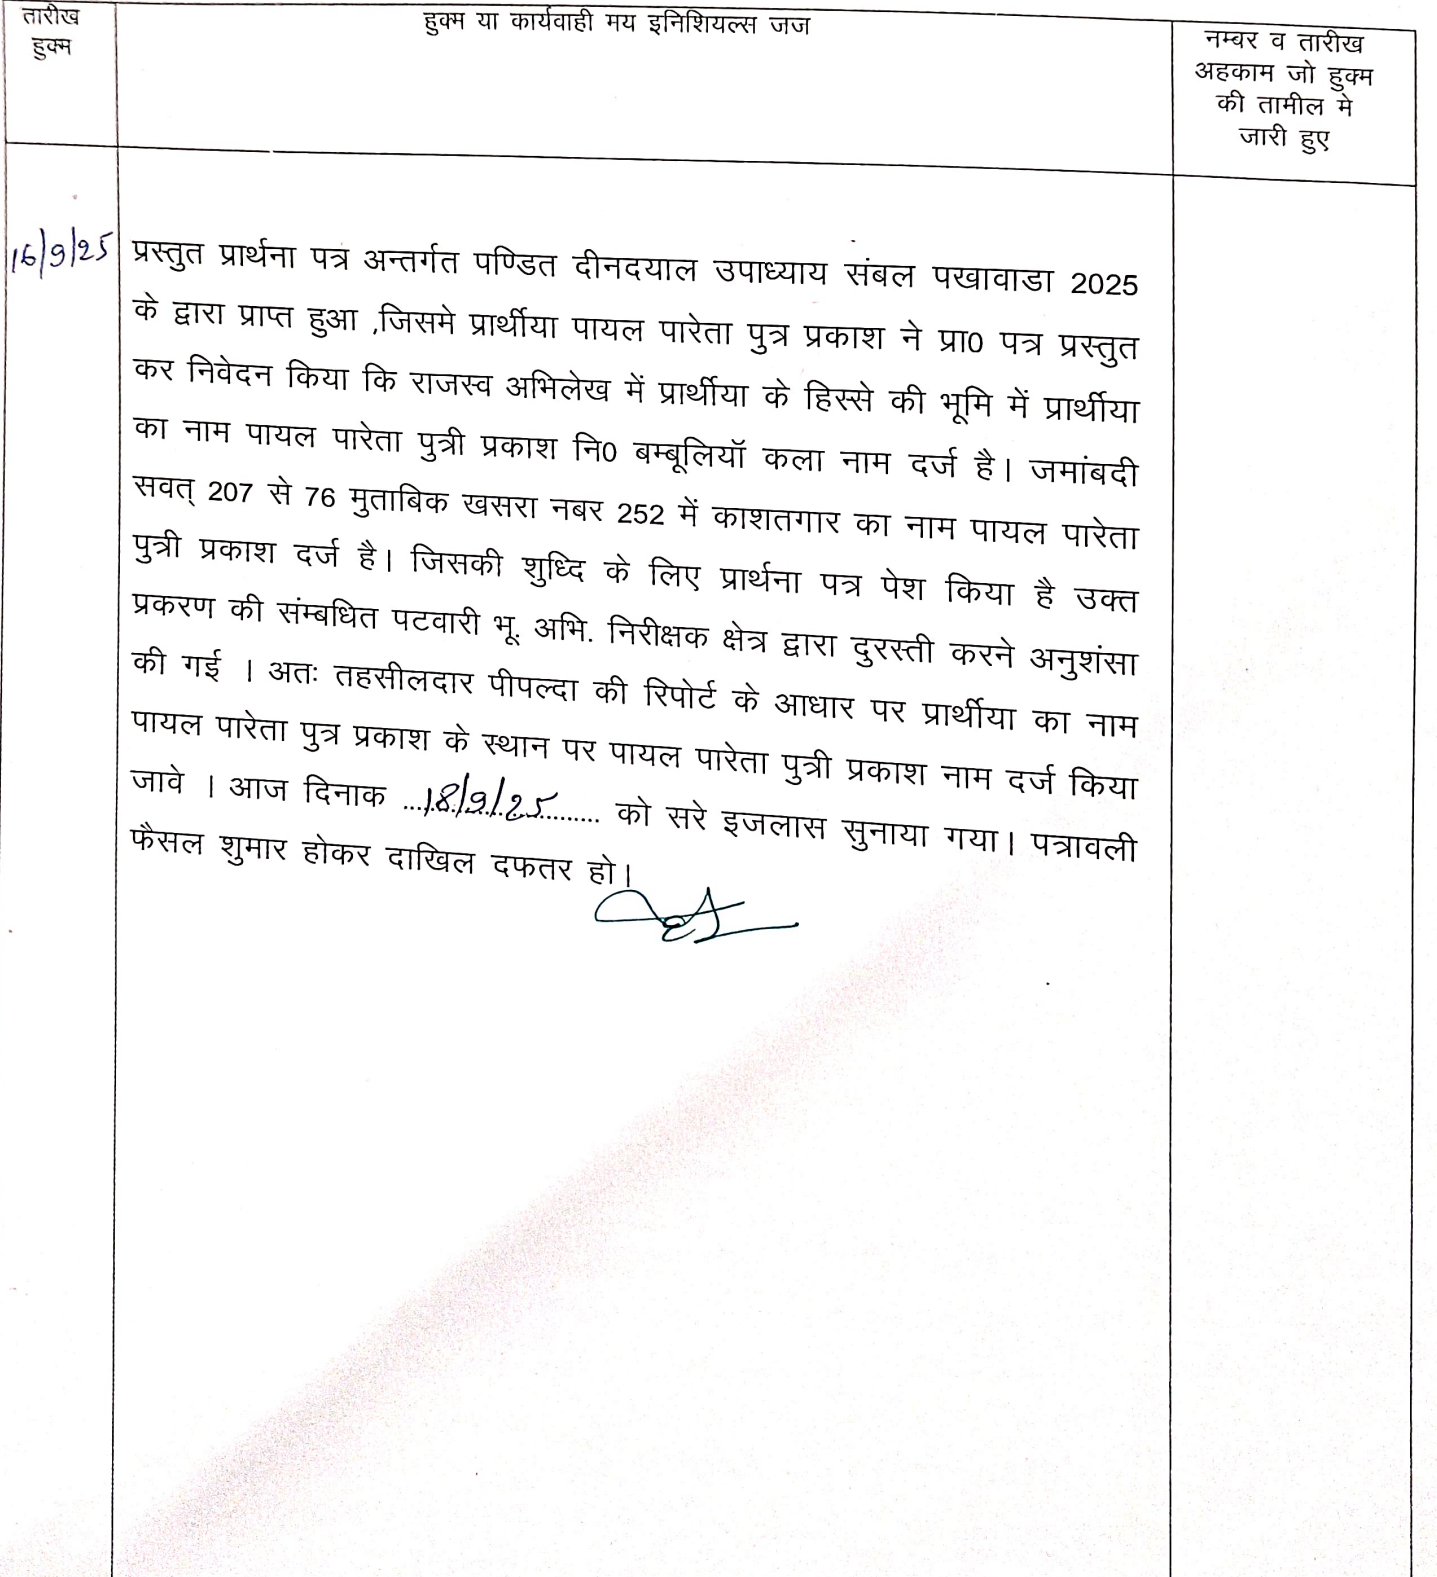 तारीख
हुक्म
हुक्म या कार्यवाही मय इनिशियल्स जज
नम्बर व तारीख
अहकाम जो हुक्म
की तामील मे
जारी हुए
16/9/25
प्रस्तुत प्रार्थना पत्र अन्तर्गत पण्डित दीनदयाल उपाध्याय संबल पखावाडा 2025
के द्वारा प्राप्त हुआ ,जिसमे प्रार्थीया पायल पारेता पुत्र प्रकाश ने प्रा0 पत्र प्रस्तुत
कर निवेदन किया कि राजस्व अभिलेख में प्रार्थीया के हिस्से की भूमि में प्रार्थीया
का नाम पायल पारेता पुत्री प्रकाश नि0 बम्बूलियॉ कला नाम दर्ज है। जमांबदी
सवत् 207 से 76 मुताबिक खसरा नबर 252 में काशतगार का नाम पायल पारेता
पुत्री प्रकाश दर्ज है। जिसकी शुध्दि के लिए प्रार्थना पत्र पेश किया है उक्त
प्रकरण की संम्बधित पटवारी भू. अभि. निरीक्षक क्षेत्र द्वारा दुरस्ती करने अनुशंसा
की गई । अतः तहसीलदार पीपल्दा की रिपोर्ट के आधार पर प्रार्थीया का नाम
पायल पारेता पुत्र प्रकाश के स्थान पर पायल पारेता पुत्री प्रकाश नाम दर्ज किया
जावे । आज दिनाक ...18/9/25... को सरे इजलास सुनाया गया। पत्रावली
फैसल शुमार होकर दाखिल दफतर हो।